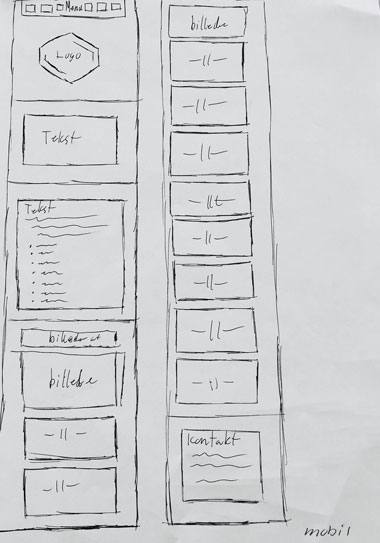 Menu
Logo
Tekst
Tekst
billeder af
billede
-||-
-||-
billede
-||-
-||-
-||-
-||-
-||-
-||-
-||-
-||-
Kontakt
mobil